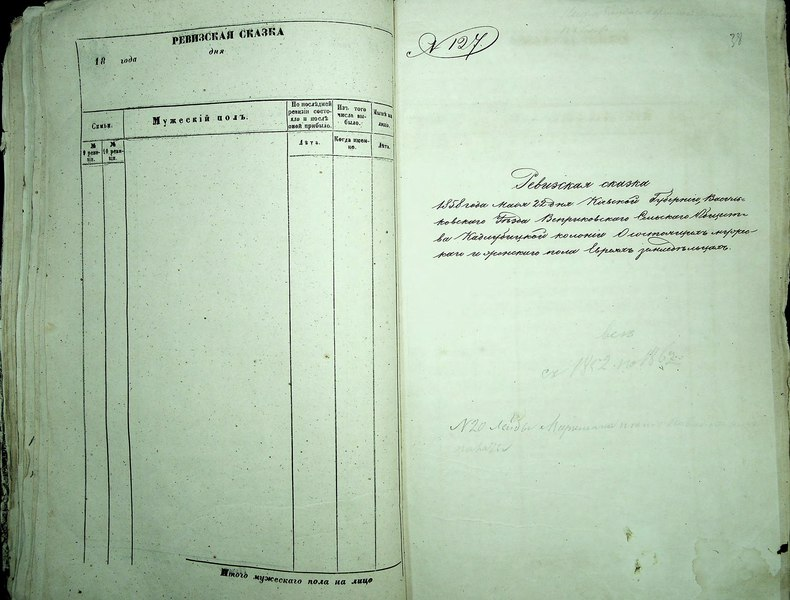 РЕВИЗСКАЯ СКАЗКА
18 года
дня
Семьи.
Мужескій полъ.
По послѣдней ревизіи состояло и послѣ оной прибыло.
Изъ того числа выбыло.
№ 9 ревизіи.
№ 10 ревизіи.
Лѣта.
Когда именно.
Лѣта.
Итого мужескаго пола на лицо
№ 127
38
Ревизская сказка
1858 года Маья 25 дня Кіевской Губерніи, Василь-
ковскаго Уѣзда Веприковскаго Сельскаго Общест-
ва Кадлубицкой колоніи О состоящихъ мужес-
каго и женскаго пола Евреяхъ земледѣльцахъ.
съ по 1862
№ 20 Лейбы